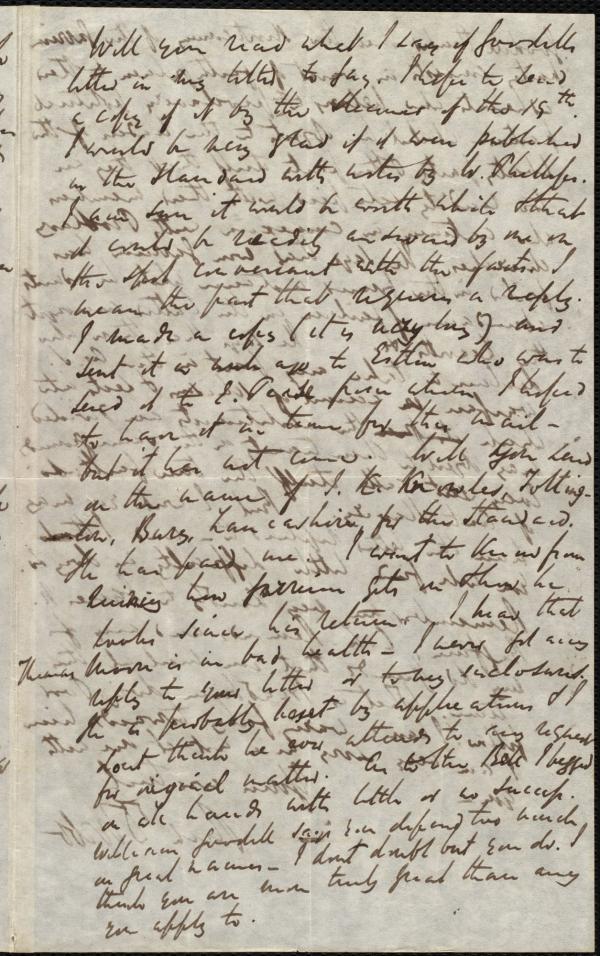 Will you read what I say of Goodell's
letter in my letter to Gay. I hope to send
a copy of it by the steamer of the 19th.
I would be very glad if it were published
in the Standard with notes by W. Phillips.
I am sure it would be worth while & that
it could be readily answered by one on
the spot conversant with the facts. I
mean the part that requires a reply.
I made a copy (it is very long) and
sent it a week ago to Estlin who was to
send it to E. Pease from whom I hoped
to have it in time for this mail –
but it has not come. Will you send
on the name of J. K. Knowles, Totting-
ton, Bury, Lancashire, for the Standard.
He has paid me. I want to know from
Quincy how gets on & how he
looks since his return. I hear that
Thomas Moore is in bad health – I never got any
reply to your letter or to my enclosures.
He is probably beset by applications & I
dont think he ever attends to any request
for original matter. As to the Bell I begged
on all hands with little or no success.
William Goodell says you depend too much
on great names – I dont doubt but you do. I
think you are more truly great than any
you apply to.